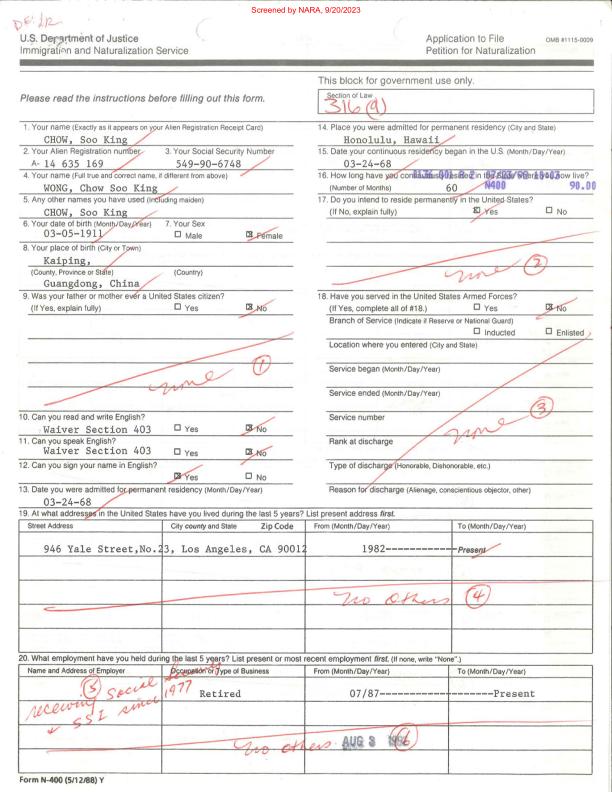 Screened by NARA, 9/20/2023
U.S. Department of Justice
Immigration and Naturalization Service
Application to File
Petition for Naturalization
OMB #1115-0009
Please read the instructions before filling out this form.
This block for government use only.
Section of Law
316(a)
1. Your name (Exactly as it appears on your Alien Registration Receipt Card)
CHOW, Soo King
2. Your Alien Registration number 3. Your Social Security Number
A- 14 635 169 549-90-6748
4. Your name (Full true and correct name, if different from above)
WONG, Chow Soo King
5. Any other names you have used (Including maiden)
CHOW, Soo King
6. Your date of birth (Month/Day/Year) 7. Your Sex
03-05-1911 ☐ Male ☒ Female
8. Your place of birth (City or Town)
Kaiping,
(County, Province or State) (Country)
Guangdong, China
9. Was your father or mother ever a United States citizen?
(If Yes, explain fully) ☐ Yes ☒ No
none 1
10. Can you read and write English?
Waiver Section 403 ☐ Yes ☒ No
11. Can you speak English?
Waiver Section 403 ☐ Yes ☒ No
12. Can you sign your name in English?
☒ Yes ☐ No
13. Date you were admitted for permanent residency (Month/Day/Year)
03-24-68
14. Place you were admitted for permanent residency (City and State)
Honolulu, Hawaii
15. Date your continuous residency began in the U.S. (Month/Day/Year)
03-24-68
16. How long have you live?
(Number of Months) 60 N400 90.00
17. Do you intend to reside permanently in the United States?
(If No, explain fully) ☒ Yes ☐ No
none 2
18. Have you served in the United States Armed Forces?
(If Yes, complete all of #18.) ☐ Yes ☒ No
Branch of Service (Indicate if Reserve or National Guard)
☐ Inducted ☐ Enlisted
Location where you entered (City and State)
Service began (Month/Day/Year)
Service ended (Month/Day/Year)
Service number
none 3
Rank at discharge
Type of discharge (Honorable, Dishonorable, etc.)
Reason for discharge (Alienage, conscientious objector, other)
19. At what addresses in the United States have you lived during the last 5 years? List present address first.
Street Address City county and State Zip Code From (Month/Day/Year) To (Month/Day/Year)
946 Yale Street,No.23, Los Angeles, CA 90012 1982------------Present
no others 4
20. What employment have you held during the last 5 years? List present or most recent employment first. (If none, write "None".)
Name and Address of Employer Occupation or Type of Business From (Month/Day/Year) To (Month/Day/Year)
5 receiving Social Security
+ SSI since 1977
Retired 07/87--------------------Present
no others AUG 3 6
Form N-400 (5/12/88) Y